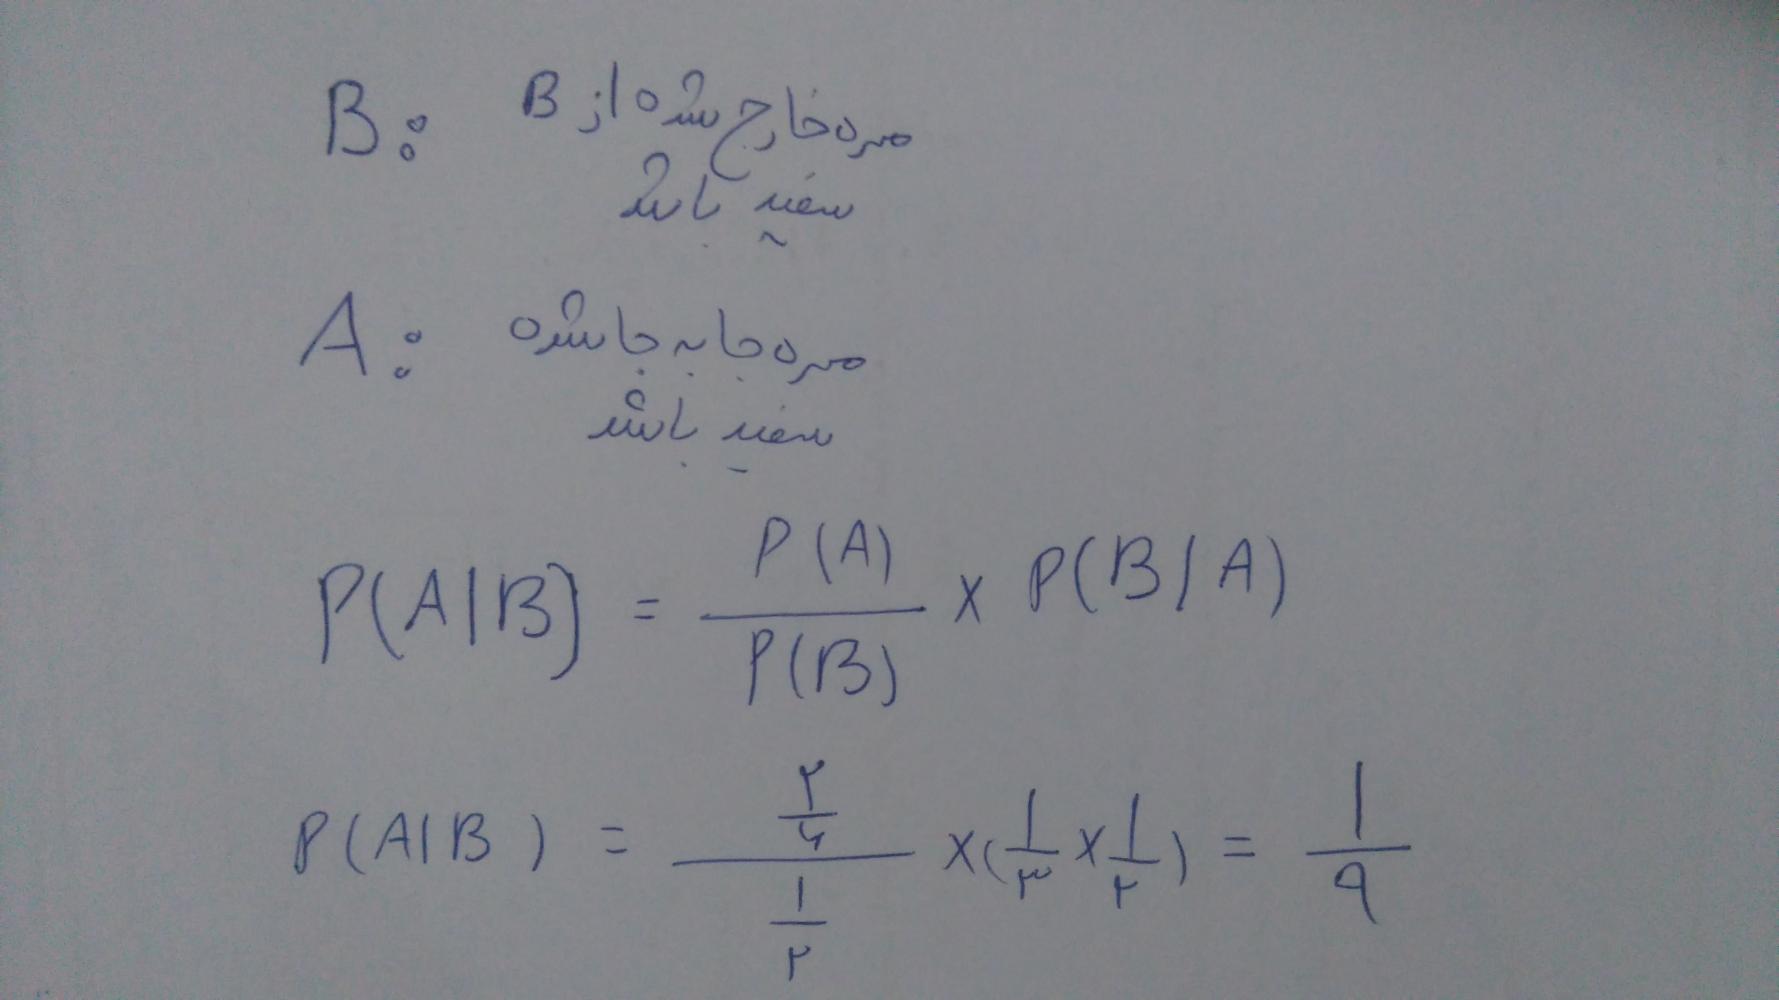 B: مهره خارج شده از B
سفید باشد
A: مهره جا به جا شده
سفید باشد
P(A|B) = P(A) / P(B) × P(B/A)
P(A|B) = (۲/۶) / (۱/۲) × (۱/۳ × ۱/۲) = ۱/۹